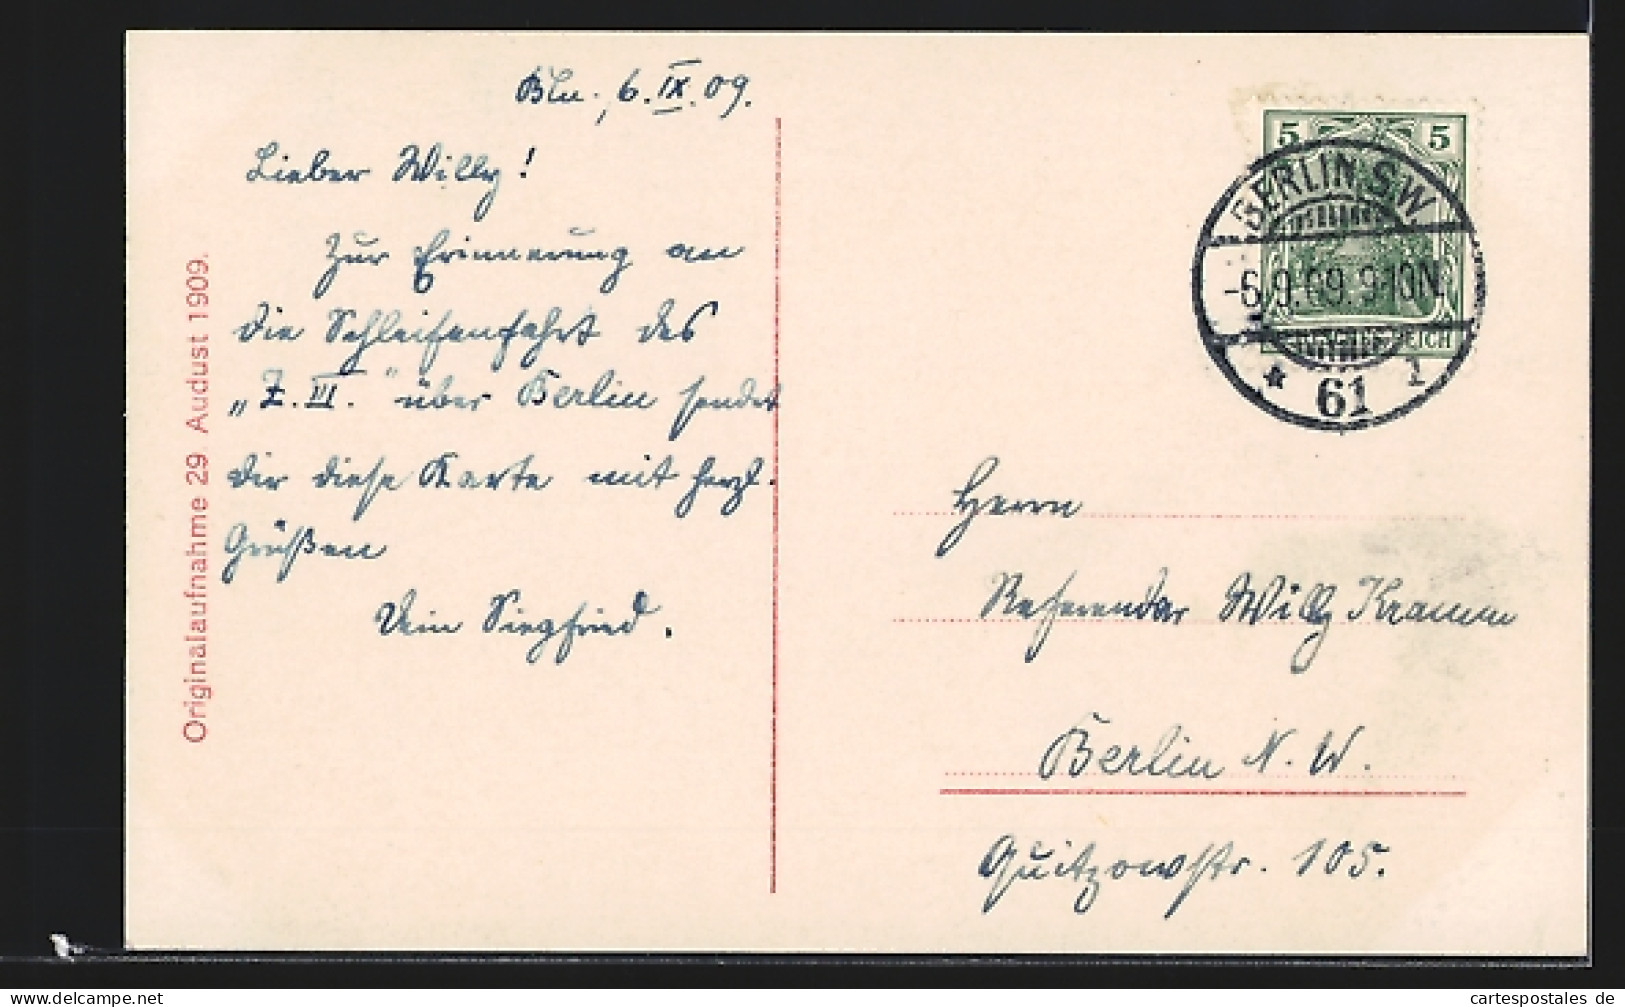 Bln., 6. IX. 09.
Lieber Willy!
Zur Erinnerung an
die Schleifenfahrt des
„Z. III.“ über Berlin sendet
dir diese Karte mit herzl.
Grüßen
Dein Siegfried.
Originalaufnahme 29 Audust 1909.
5 5
BERLIN S.W.
-6.9.09.9-10N.
* 61 1
Herrn
Referendar Willy Kramm
Berlin N. W.
Quitzowstr. 105.
www.delcampe.net
cartespostales de